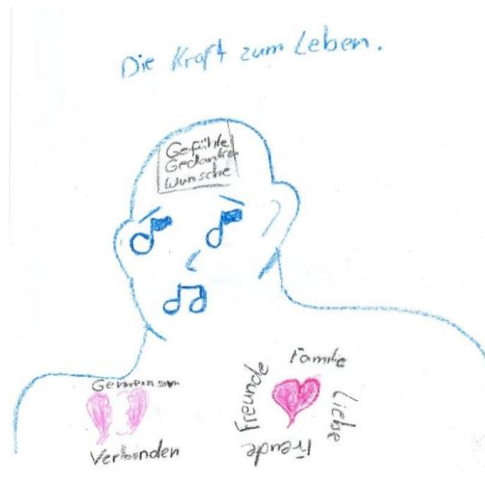 Die Kraft zum Leben.
Gefühle
Gedanken
Wünsche
Gemeinsam
Verbinden
Familie
Liebe
Freude
Freunde